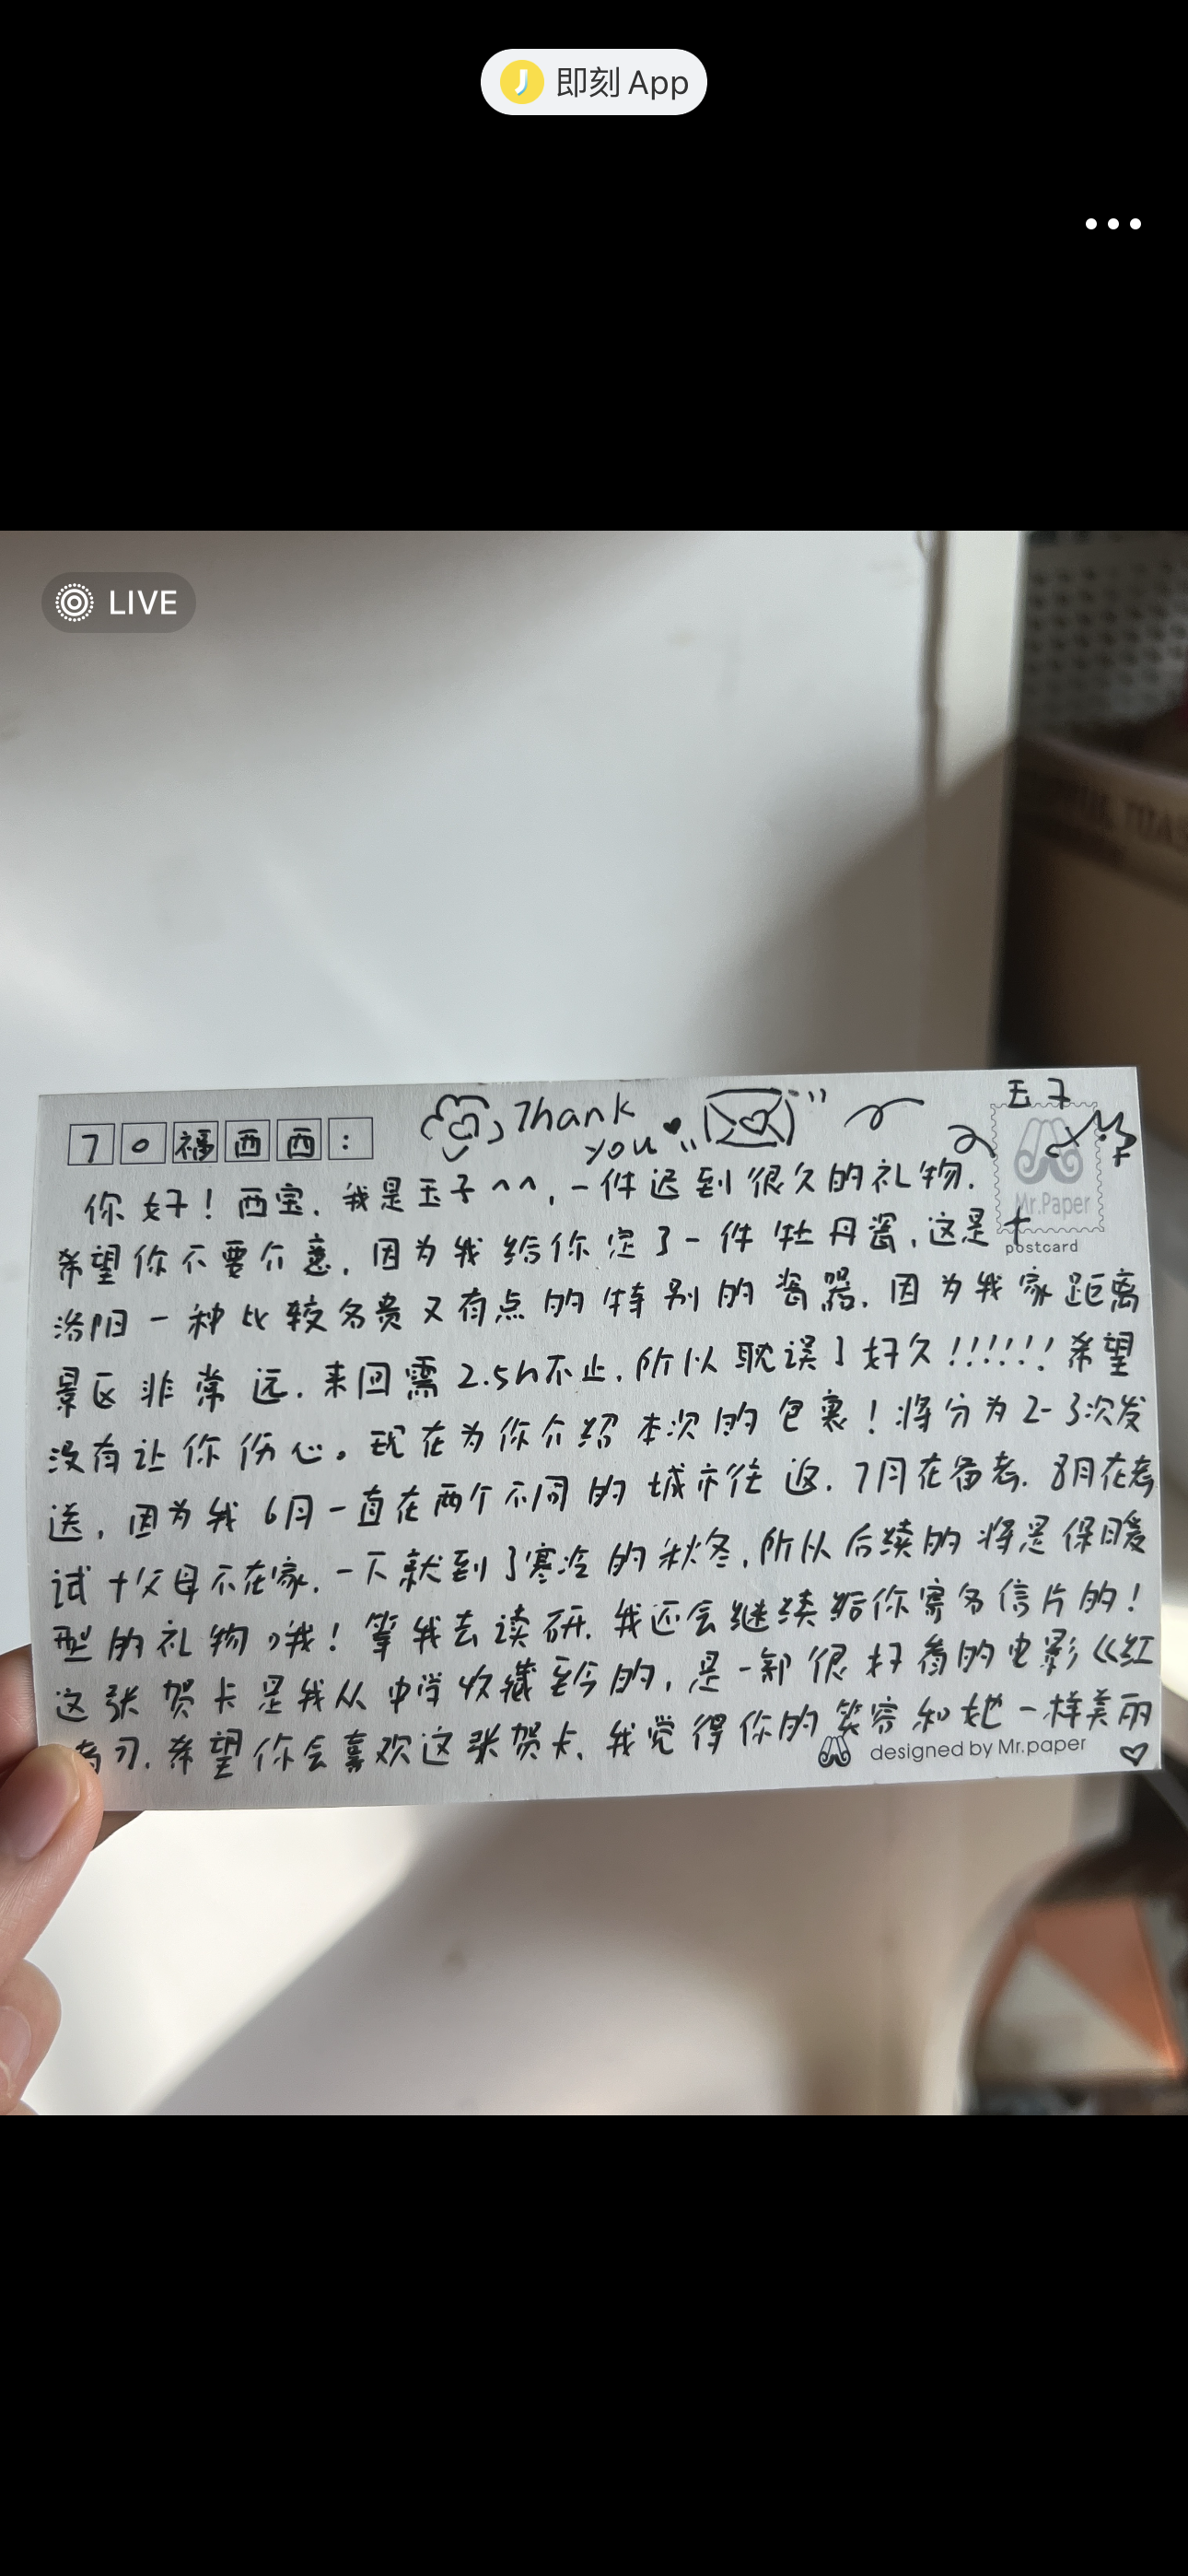 即刻App
LIVE
70福西西：
Thank
you
玉子
Mr.Paper
postcard
你好！西宝，我是玉子^^，一件迟到很久的礼物，
希望你不要介意，因为我给你定了一件牡丹瓷，这是
洛阳一种比较名贵又有点的特别的瓷器，因为我家距离
景区非常远，来回需2.5h不止，所以耽误了好久！！！！！！希望
没有让你伤心。现在为你介绍本次的包裹！将分为2-3次发
送，因为我6月一直在两个不同的城市往返，7月在备考，8月在考
试+父母不在家，一下就到了寒冷的秋冬，所以后续的将是保暖
型的礼物哦！等我去读研，我还会继续给你寄明信片的！
这张贺卡是我从中学收藏至今的，是一部很好看的电影《红
，希望你会喜欢这张贺卡，我觉得你的笑容和她一样美丽
designed by Mr.paper